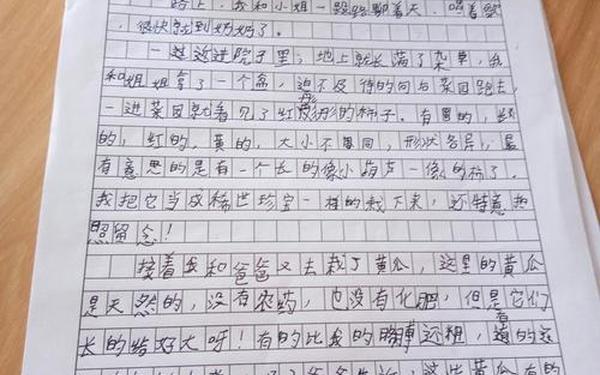 路上，我和小姐一路聊着天，唱着
很快就到奶奶了。
一进这进院子里，地上就长满了杂草，我
和姐姐拿了一个盆，迫不及待的向与菜园跑去，
一进菜园就看见了红彤彤的柿子。有圆的，
的，红的，黄的，大小不同，形状各异，最
有意思的是有一个长的像小葫芦一像的柿了。
我把它当成稀世珍宝一样的栽下来，还特意
照留念！
接着我和爸爸又去栽了黄瓜，这里的黄瓜
是天然的，没有农药，也没有化肥，但是它们
长的好大呀！有的比我的还粗，有的
这些黄瓜有的